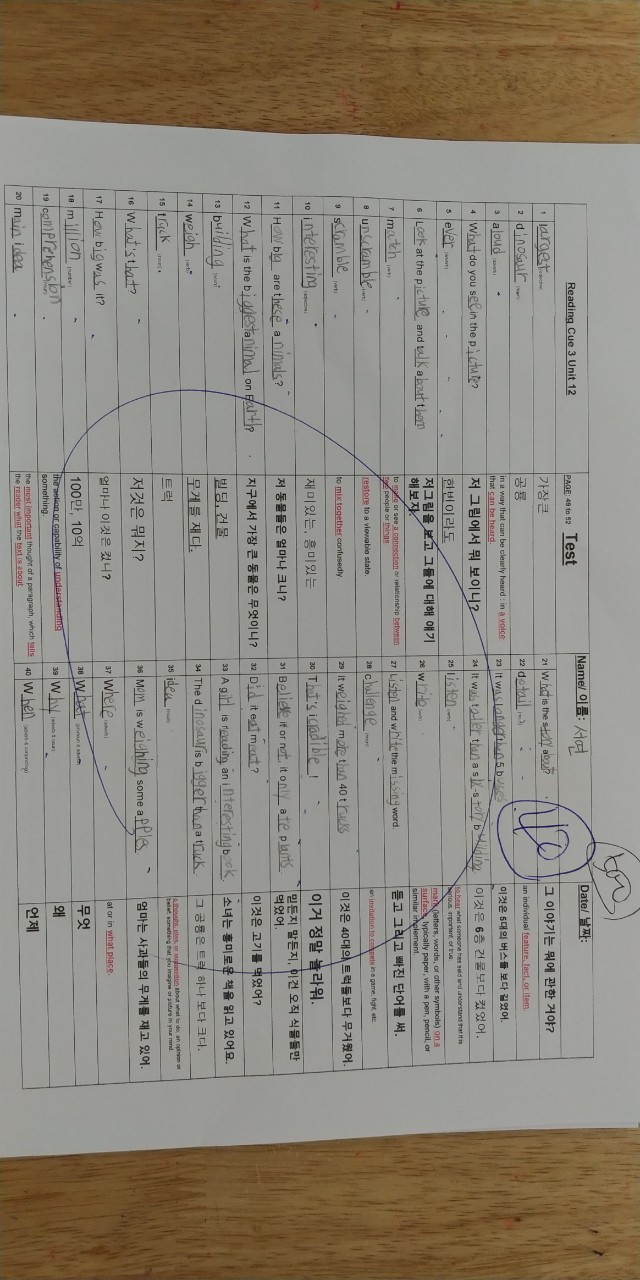 Reading Cue 3 Unit 12 PAGE: 49 to 52 Test Name/ 이름: 서연 Date/ 날짜:
40
1 largest 가장큰
2 dinosaur 공룡
3 aloud in a way that can be clearly heard : in a voice that can be heard.
4 What do you see in the picture? 저 그림에서 뭐 보이니?
5 ever 한번이라도
6 Look at the picture and talk about them 저그림을 보고 그들에 대해 얘기 해보자
7 match to make or see a connection or relationship between two people or things
8 unscramble restore to a viewable state.
9 scramble to mix together confusedly
10 interesting 재미있는, 흥미있는
11 How big are these animals? 저 동물들은 얼마나 크니?
12 What is the biggest animal on Earth? 지구에서 가장 큰 동물은 무엇이니?
13 building 빌딩, 건물
14 weigh 무게를 재다.
15 truck 트럭
16 What's that? 저것은 뭐지?
17 How big was it? 얼마나 이것은 컸니?
18 million 100만, 10억
19 comprehension the action or capability of understanding something.
20 main idea the most important thought of a paragraph, which tells the reader what the text is about
21 What is the story about? 그 이야기는 뭐에 관한 거야?
22 detail an individual feature, fact, or item.
23 It was longer than 5 buses 이것은 5대의 버스를 보다 길었어.
24 It was taller than a six-story building 이것은 6층 건물보다 컸었어.
25 listen to hear what someone has said and understand that it is serious, important, or true
26 write mark (letters, words, or other symbols) on a surface, typically paper, with a pen, pencil, or similar implement.
27 Listen and write the missing word. 듣고 그리고 빠진 단어를 써.
28 challenge an invitation to compete in a game, fight, etc.
29 It weighed more than 40 trucks 이것은 40대의 트럭들보다 무거웠어.
30 That's icredible! 이거 정말 놀라워.
31 Believe if or not, it only ate plants 믿든지 말든지, 이건 오직 식물들만 먹었어.
32 Did it eat meat? 이것은 고기를 먹었어?
33 A girl is reading an interesting book 소녀는 흥미로운 책을 읽고 있어요.
34 The dinosaur is bigger than a truck 그 공룡은 트럭 하나 보다 크다.
35 idea a thought, plan, or suggestion about what to do, an opinion or belief, something that you imagine or picture in your mind
36 Mom is weighing some apples 엄마는 사과들의 무게를 재고 있어.
37 Where at or in what place.
38 What 무엇
39 Why 왜
40 When 언제